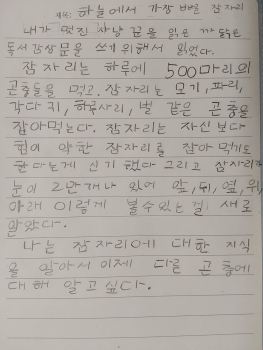 제목: 하늘에서 가장 빠른 잠자리
내가 멋진 사냥꾼 잠자리를 읽은 까닭은
독서감상문을 쓰기 위해서 읽었다.
잠자리는 하루에 500마리의
곤충들을 먹고, 잠자리는 모기, 파리,
각다귀, 하루살이, 벌 같은 곤충을
잡아먹는다. 잠자리는 자신보다
힘이 약한 잠자리를 잡아먹기도
한다는게 신기했다 그리고 잠자리가
눈이 2만개나 있어 앞, 뒤, 옆, 위,
아래 이렇게 볼수있는 걸, 새로
알았다.
나는 잠자리에 대한 지식
을 알아서 이제 다른 곤충에
대해 알고 싶다.